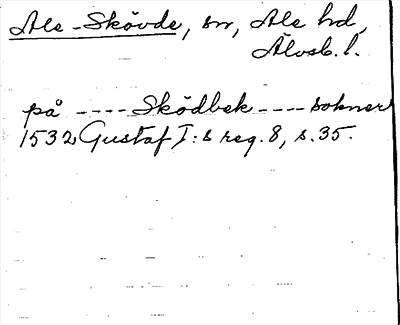 Ale-Skövde, sn, Ale hd,
Älvsb. l.
på ---- Sködbek ---- sokner
1532 Gustaf I:s reg. 8, s. 35.